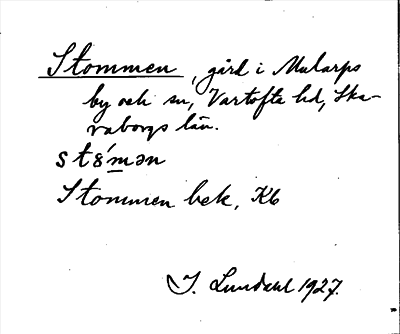 Stommen, gård i Mularps
by och sn, Vartofta hd, Ska-
raborgs län.
st8´mən
Stommen bek. Kb
I. Lundahl 1927.